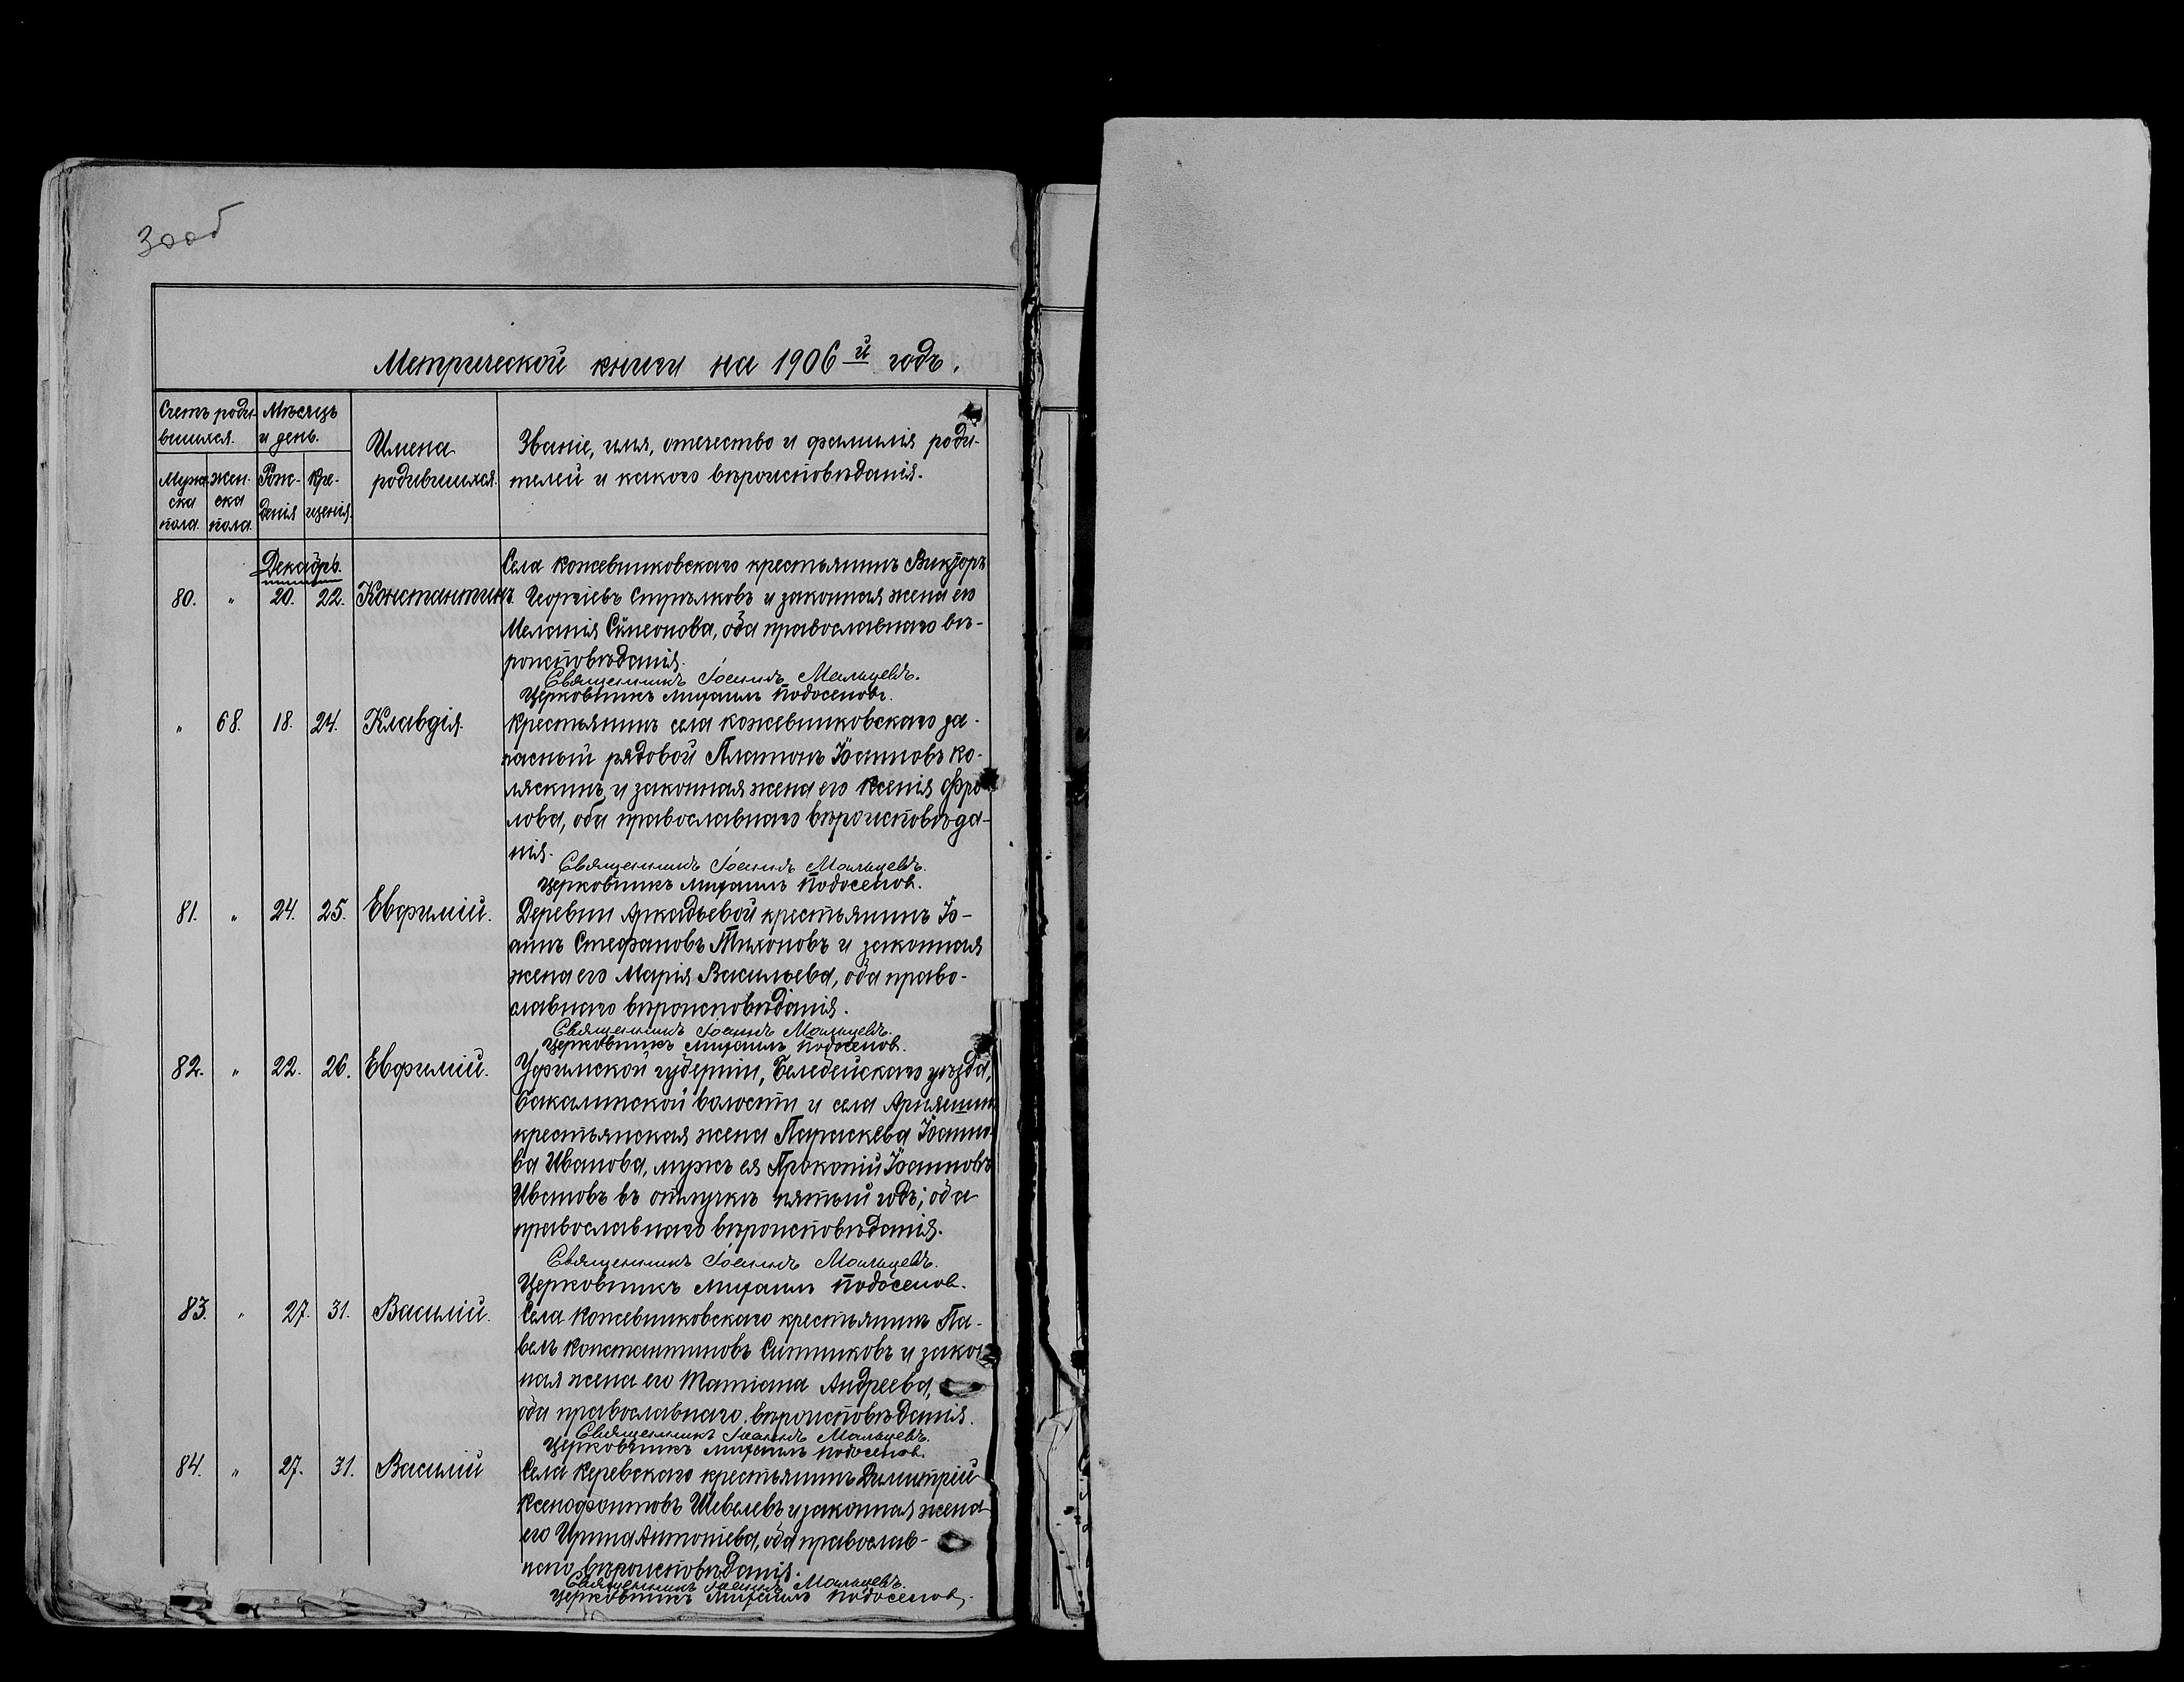 30об
Метрической книги на 1906 й годъ.
Счетъ роди-
вшихся.
Мѣсяцъ
и день.
Имена
родившихся.
Званіе, имя, отчество и фамилія роди-
телей и какого вѣроисповѣданія.
Муже-
ска
пола.
жен-
ска
пола.
Рож-
денія
Кре-
щенія.
Декабрь.
80. " 20. 22. Константинъ.
Села Кожевниковскаго крестьянинъ Викторъ
Георгіевъ Стрѣлковъ и законная жена его
Меланія Симеонова, оба православнаго вѣ-
роисповѣданія.
Священникъ Іоаннъ Мальцевъ.
Церковникъ Михаилъ Подосеновъ.
" 68. 18. 24. Клавдія.
Крестьянинъ села Кожевниковскаго за-
пасный рядовой Платонъ Іоанновъ Ко-
ляскинъ и законная жена его Ксенія Фро-
лова, оба православнаго вѣроисповѣда-
нія.
Священникъ Іоаннъ Мальцевъ.
Церковникъ Михаилъ Подосенов.
81. " 24. 25. Евфимій.
Деревни Аркадьевой крестьянинъ Іо-
аннъ Стефановъ Тихоновъ и законная
жена его Марія Васильева, оба право-
славнаго вѣроисповѣданія.
Священникъ Іоаннъ Мальцевъ.
Церковникъ Михаилъ Подосенов.
82. " 22. 26. Евфимій.
Уфимской губерніи, Белебейскаго уѣзда,
Бакалинской волости и села
крестьянская жена Параскева Іоанно-
ва Иванова, мужъ ея Прокопій Іоанновъ
Ивановъ въ отлучкѣ пятый годъ; оба
православнаго вѣроисповѣданія.
Священникъ Іоаннъ Мальцевъ.
Церковникъ Михаилъ Подосенов.
83. " 27. 31. Василій.
Села Кожевниковскаго крестьянинъ Па-
велъ Константиновъ Ситниковъ и закон-
ная жена его Татіана Андреева,
оба православнаго вѣроисповѣданія.
Священникъ Іоаннъ Мальцевъ.
Церковникъ Михаилъ Подосенов.
84. " 27. 31. Василій
Села Керевскаго крестьянинъ Димитрій
Ксенофонтовъ Шевелевъ и законная жена
его Ирина Антоніева, оба православ-
наго вѣроисповѣданія.
Священникъ Іоаннъ Мальцевъ.
Церковникъ Михаилъ Подосенов.